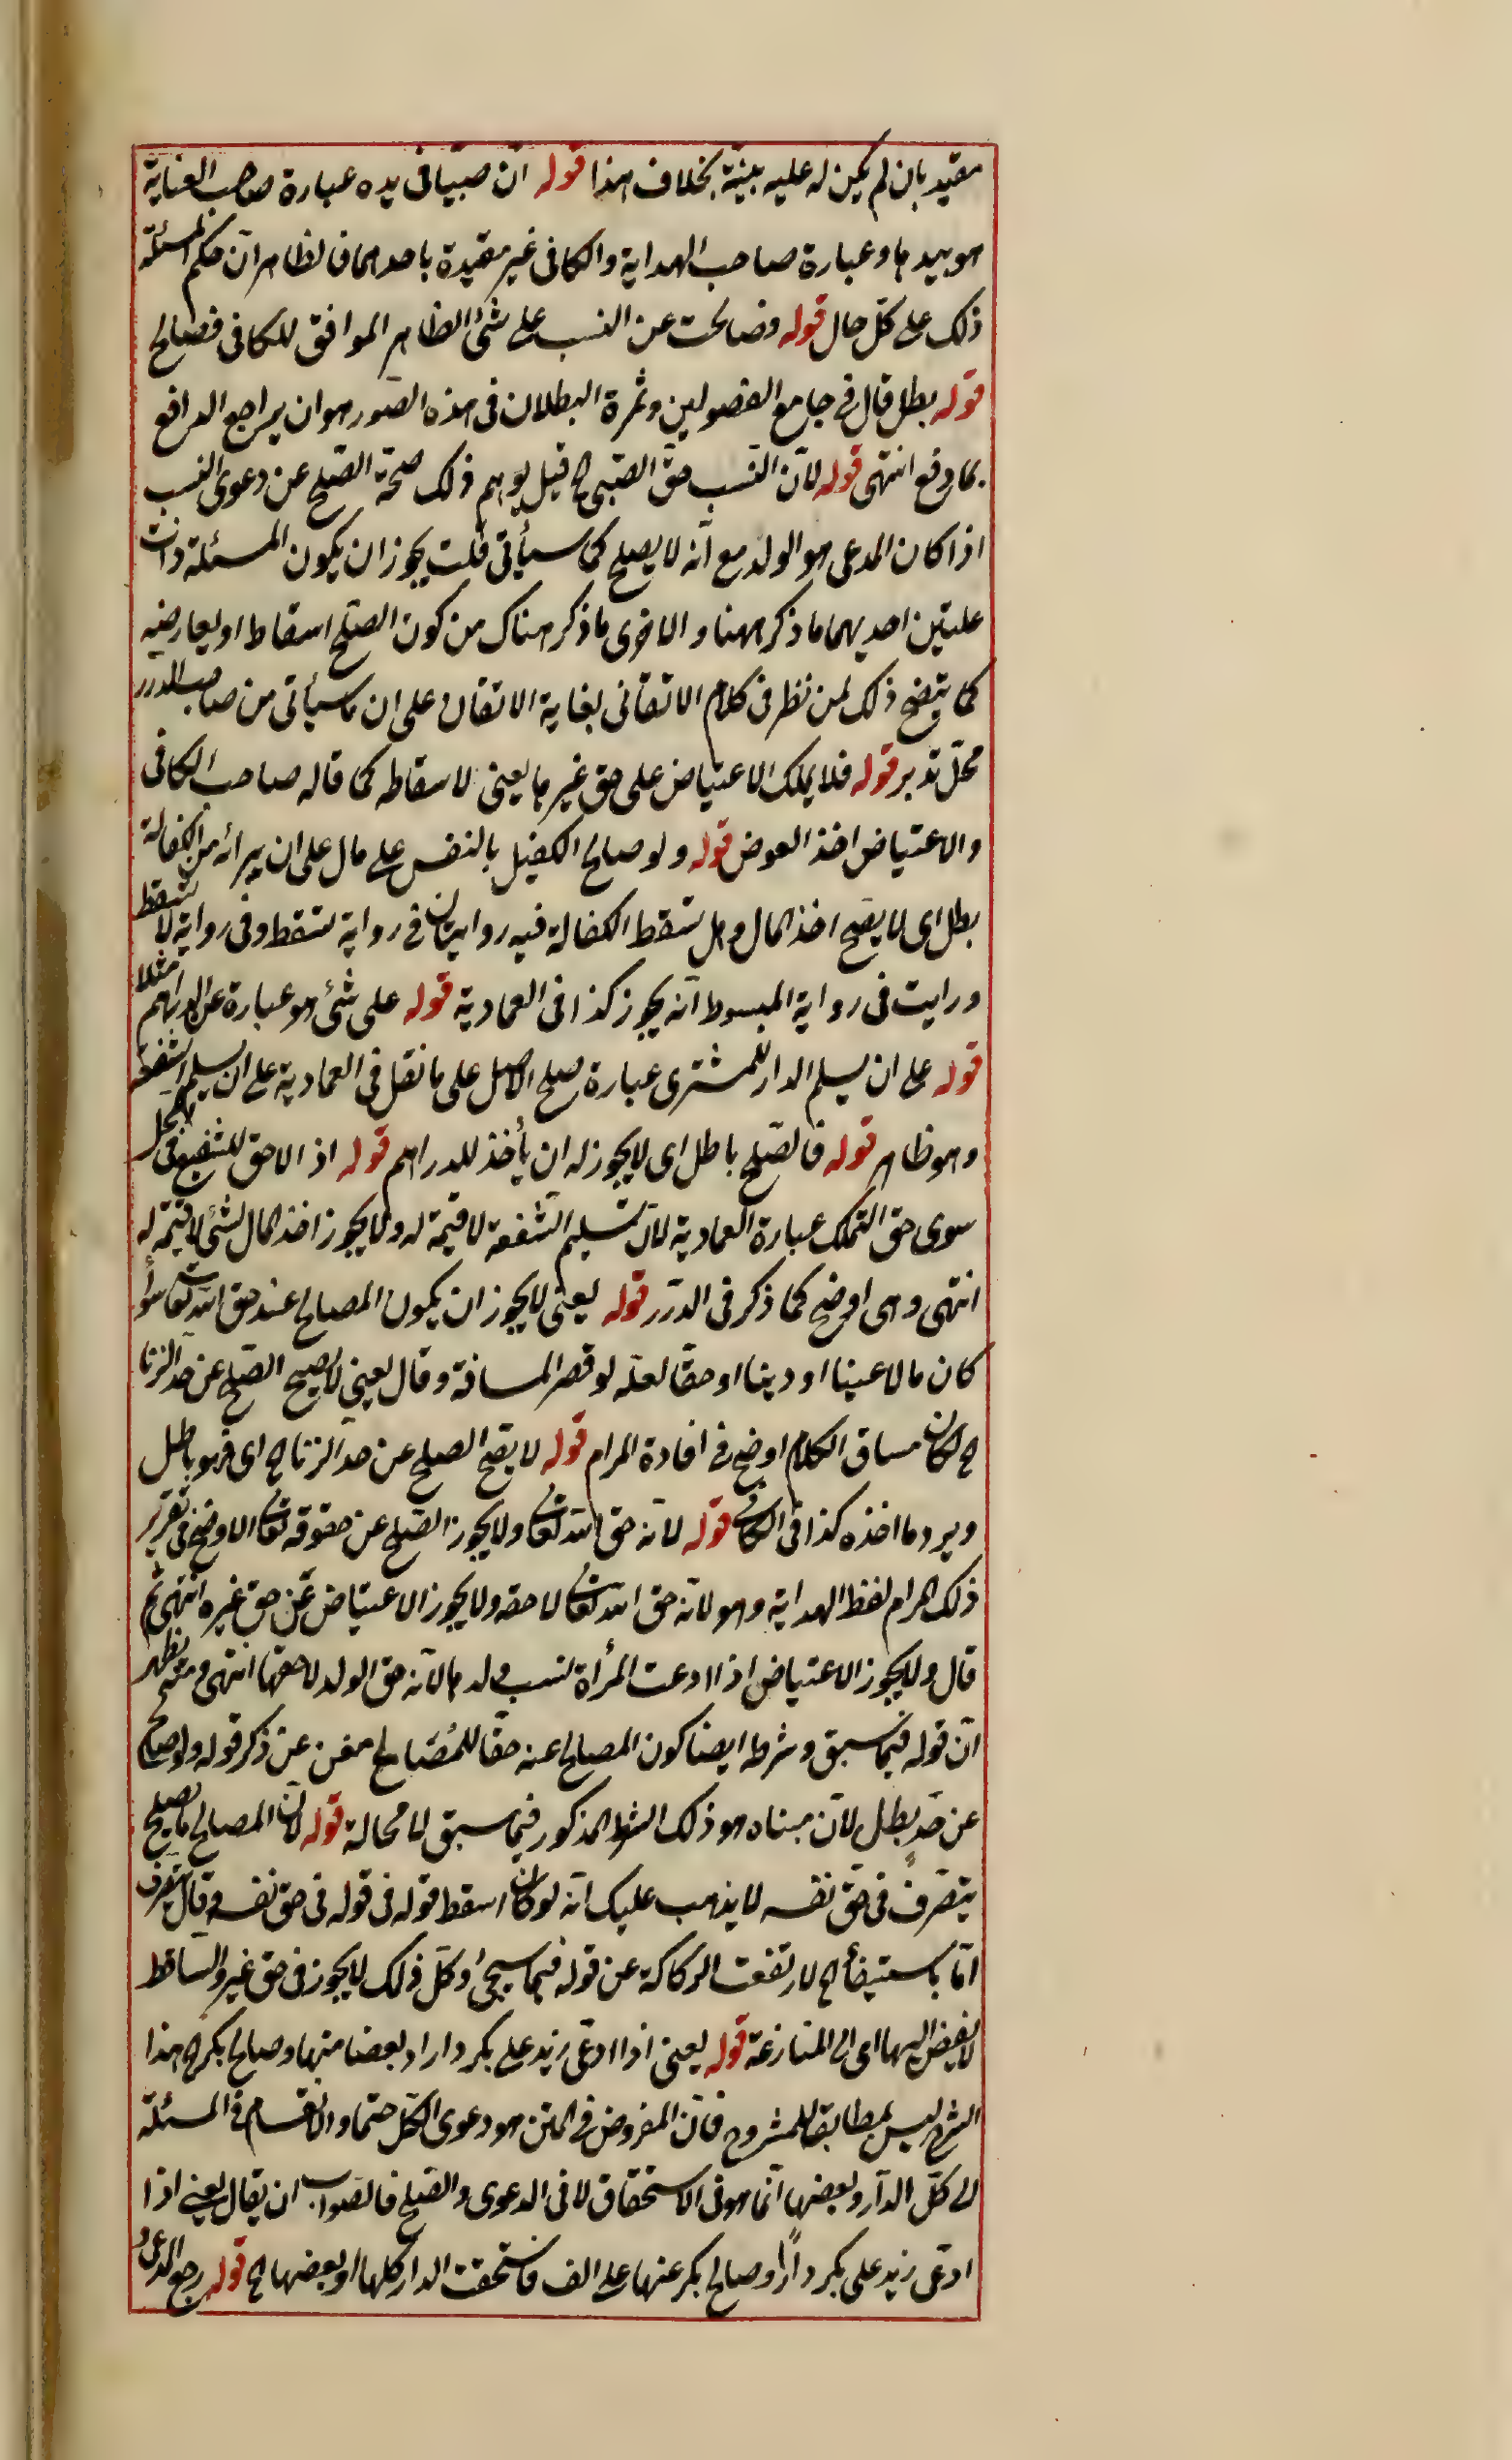 مقيد بان لم يكن له عليه بينة بخلاف هذا قوله ان صبيا فى يده عبارة صاحب العناية
هو بيدها وعبارة صاحب الهداية والكافى غير مقيدة باحدهما فالظاهر ان حكم المسئلة
ذلك على كل حال قوله وصالحت عن النسب على شئ الظاهر الموافق للكافى فصالح
قوله بطل قال فى جامع الفصولين وثمرة البطلان فى هذه الصور هو ان يراجع الدافع
بما وقع انتهى قوله لان النسب حق الصبى الخ قيل يوهم ذلك صحة الصلح عن دعوى النسب
اذا كان المدعى هو الولد مع انه لا يصلح كما سيأتى قلت يجوز ان يكون المسئلة ذات
علتين احديهما ما ذكر ههنا والاخرى ما ذكر هناك من كون الصلح اسقاطا او
كما يتضح ذلك لمن نظر فى كلام الاتقانى بغاية الاتقان وعلى ان ما سيأتى من صاحب الدرر
محل تدبر قوله فلا يملك الاعتياض على حق غيرها يعنى لاسقاطه كما قاله صاحب الكافى
والاعتياض اخذ العوض قوله ولو صالح الكفيل بالنفس على مال على ان يبرأه من الكفالة
بطل اى لا يصح اخذ المال وهل تسقط الكفالة فيه روايتان فى رواية تسقط وفى رواية لا تسقط
ورايت فى رواية المبسوط انه يجوز كذا فى العمادية قوله على شئ هو عبارة عن الدراهم مثلا
قوله على ان يسلم الدار للمشترى عبارة صلح الاصل على ما نقل فى العمادية على ان يسلم الشفعة
وهو ظاهر قوله فالصلح باطل اى لا يجوز له ان يأخذ للدراهم قوله اذ لا حق للشفيع فى المحل
سوى حق التملك عبارة العمادية لان تسليم الشفعة لا قيمة له ولا يجوز اخذ المال لشئ لا قيمة له
انتهى وهى اوضح كما ذكر فى الدرر قوله يعنى لا يجوز ان يكون المصالح عنه حق الله تعالى سواء
كان مالا عينا او دينا او حقا لعله لو قصر المسافة وقال يعنى لا يصح الصلح عن حد الزنا
الخ لكان مساق الكلام اوضح فى افادة المرام قوله لا يصح الصلح عن حد الزنا الخ اى فهو باطل
ويرد ما اخذه كذا فى الكافى قوله لانه حق الله تعالى ولا يجوز الصلح عن حقوقه تعالى الاوضح فى تقرير
ذلك المرام لفظ الهداية وهو لانه حق الله تعالى لا حقه ولا يجوز الاعتياض عن حق غيره انتهى ثم
قال ولا يجوز الاعتياض اذا ادعت المرأة نسب ولدها لانه حق الولد لا حقها انتهى ومنه يظهر
ان قوله فيما سبق وشرطه ايضا كون المصالح عنه حقا للمصالح مغن عن ذكر قوله ولو صالح
عن حد بطل لان مبناه هو ذلك الشرط المذكور فيما سبق لا محالة قوله لان المصالح بالصلح
يتصرف فى حق نفسه لا يذهب عليك انه لو كان اسقط قوله فى قوله فى حق نفسه وقال يتصرف
اما باستيفاء الخ لارتفعت الركاكة عن قوله فيما سيجئ وكل ذلك لا يجوز فى حق غيره والساقط
لا يفيض اليها اى الى المنازعة قوله يعنى اذا ادعى زيد على بكر دارا او بعضا منها وصالح بكر الخ هذا
الشرح ليس بمطابق للمشروح فان المفروض فى المتن هو دعوى الكل حتما والانقسام فى المسئلة
الى كل الدار وبعضها انما هو فى الاستحقاق لا فى الدعوى والصلح فالصواب ان يقال يعنى اذا
ادعى زيد على بكر دارا وصالح بكر عنها على الف فاستحقت الدار كلها او بعضها الخ قوله رجع المدعى